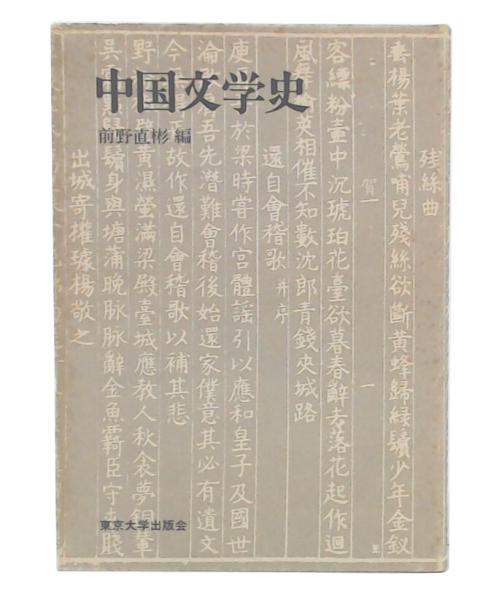 中国文学史
前野直彬 編
残絲曲
垂楊葉老鶯哺兒殘絲欲斷黄蜂歸緑鬢少年金釵
賀一
一
客縹粉壺中沉琥珀花臺欲暮春辭去落花起作迴
風舞 英相催不知數沈郎青錢夾城路
還自會稽歌 并序
庾 於梁時嘗作宮體謡引以應和皇子及國世
淪 吾先潛難會稽後始還家僕意其必有遺文
今 故作還自會稽歌以補其悲
野 黄濕螢滿梁殿臺城應教人秋衾夢銅輦
吳 鬢身與塘蒲晚脉脉辭金魚羈臣守 賤
出城寄權璩楊敬之
東京大学出版会